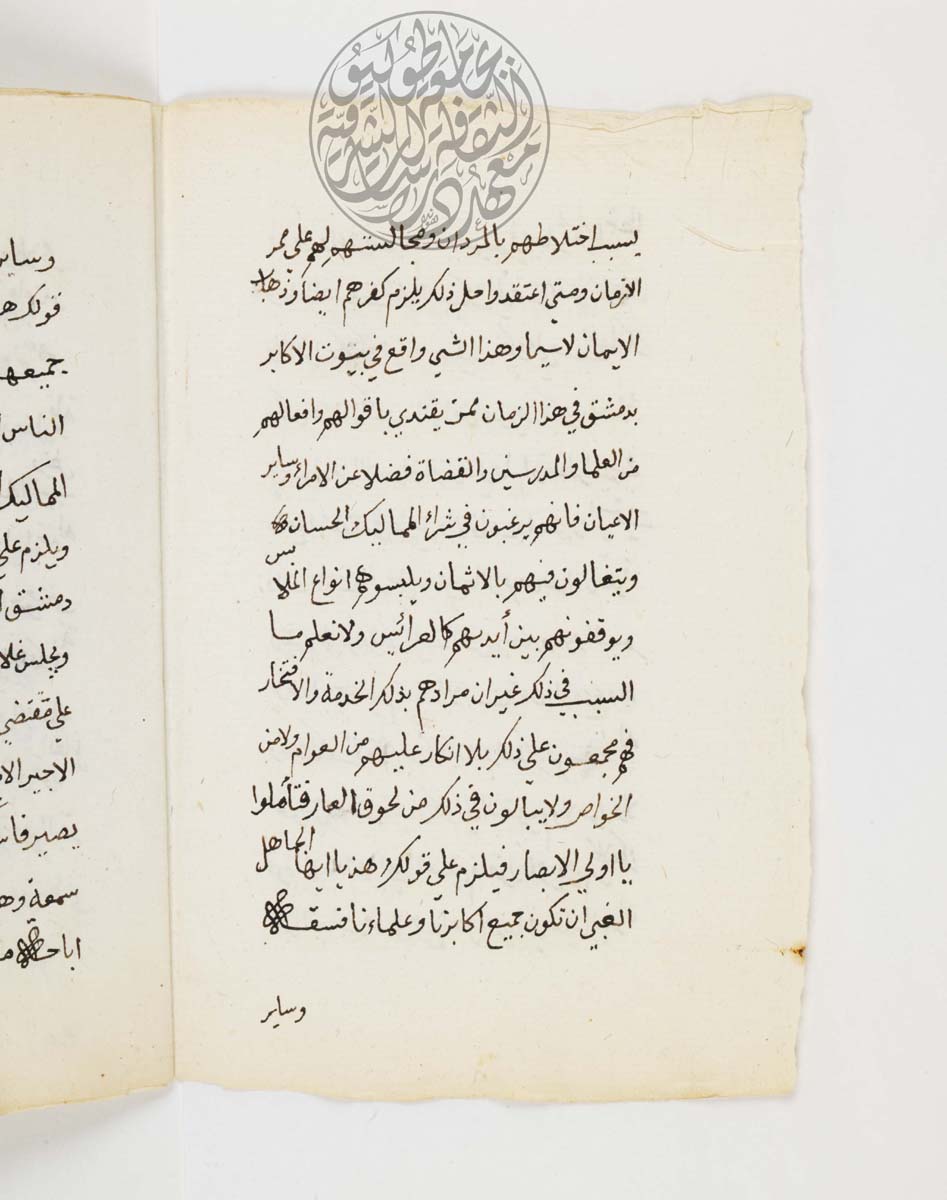 بسبب اختلاطهم بالمردان ومجالستهم لهم على ممر
الازمان ومتي اعتقدوا حل ذلك يلزم كفرهم ايضا وذهاب
الايمان لاسيما وهذا الشي واقع في بيوت الاكابر
بدمشق في هذا الزمان ممن يقتدي باقوالهم وافعالهم
من العلما والمدرسين والقضاة فضلا عن الامراء وساير
الاعيان فانهم يرغبون في شراء المماليك الحسان
ويتغالون فيهم بالاثمان ويلبسوهم انواع الملابس
ويوقفونهم بين أيديهم كالعرائيس ولا نعلم ما
السبب في ذلك غير ان مرادهم بذلك الخدمة والافتخار
فهم مجمعون علي ذلك بلا انكار عليهم من العوام ولا من
الخواص ولا يبالون في ذلك من لحوق العار فتأملوا
يا اولي الابصار فيلزم علي قولك هذا يا ايها الجاهل
الغبي ان تكون جميع اكابرنا وعلماءنا فسقة
وساير
وساير
قولك
جميعهم
الناس
المماليك
ويلزم علي
دمشق
ويجلس
علي مقتضي
الاجير
يصير
سمعة